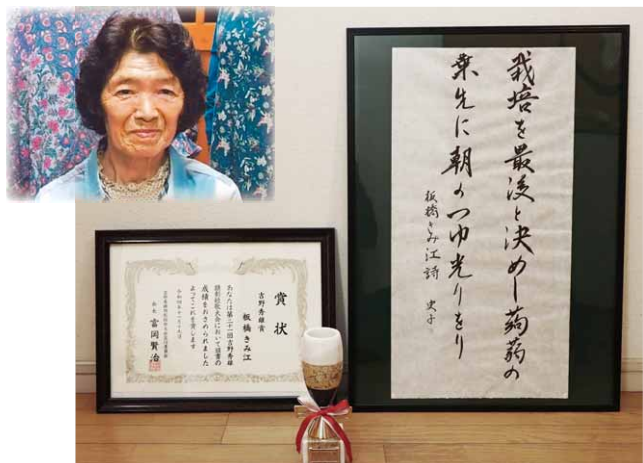 栽培を最後と決めし蒟蒻の
葉先に朝のつゆ光りをり
板橋きみ江 詩
賞状
吉野秀雄賞
板橋きみ江
あなたは第二十一回吉野秀雄
顕彰短歌大会において頭書の
成績をおさめられました
よってこれを賞します
富岡賢治